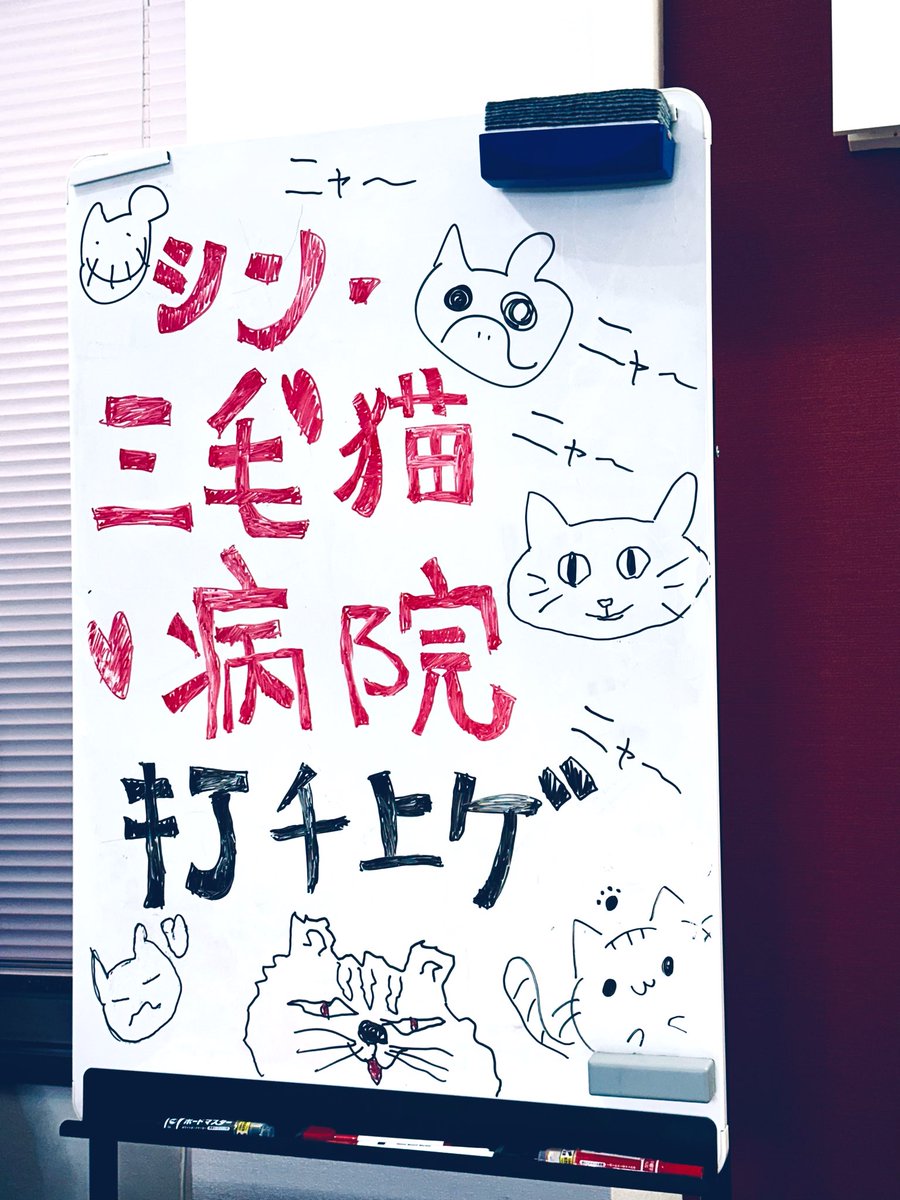 ニャ〜
シン・
ニャ〜
三毛猫
ニャ〜
病院
ニャ〜
打チ上ゲ
ボードマスター